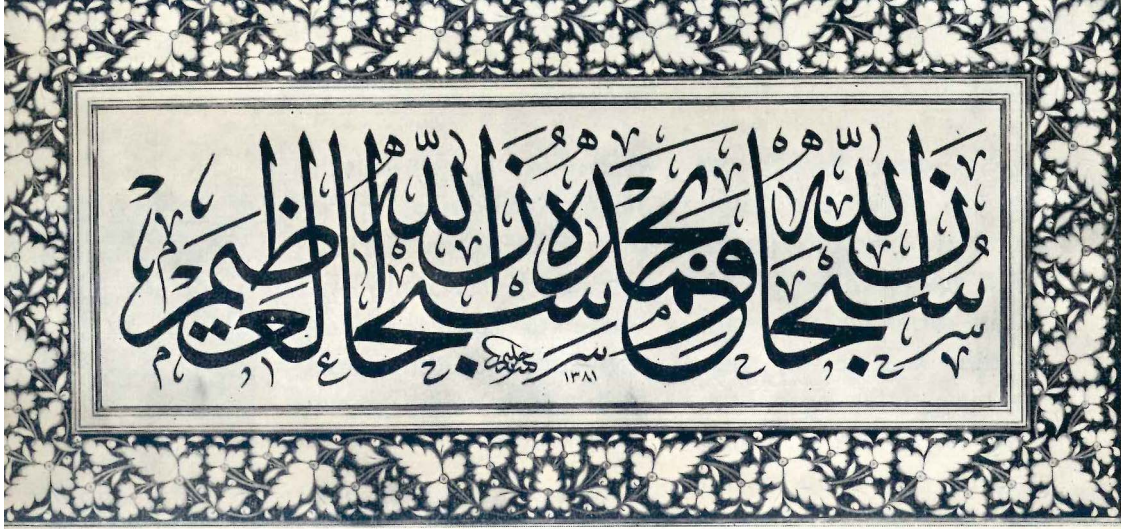 سُبْحَانَ اللّٰهِ وَبِحَمْدِهِ سُبْحَانَ اللّٰهِ الْعَظِيمِ
١٣٨١